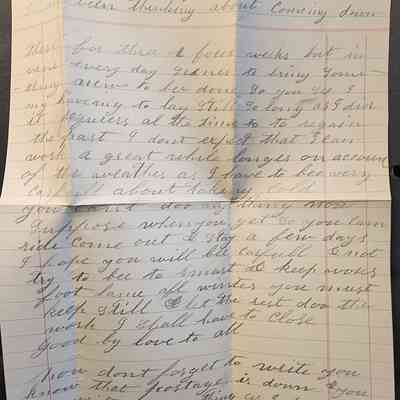 been thinking about coming down
for three & four weeks but in
every day seames to bring some
thing anew to bee done So you see I
my haveing to lay still so long as I did
it requiers al the time to to regain
the past I dont expect that I can
work a great while longer on account
of the weather as I have to bee very
carfull about takeing cold
you cant doo any thing now
Suppose when you get so you can
ride come out & stay a few days
I hope you will bee carfull & not
try to bee to smart & keep
foot lame all winter you must
keep still & let the rest doo the
work I shall have to close
good by love to all
now dont forget to write you
know that postage is down & you